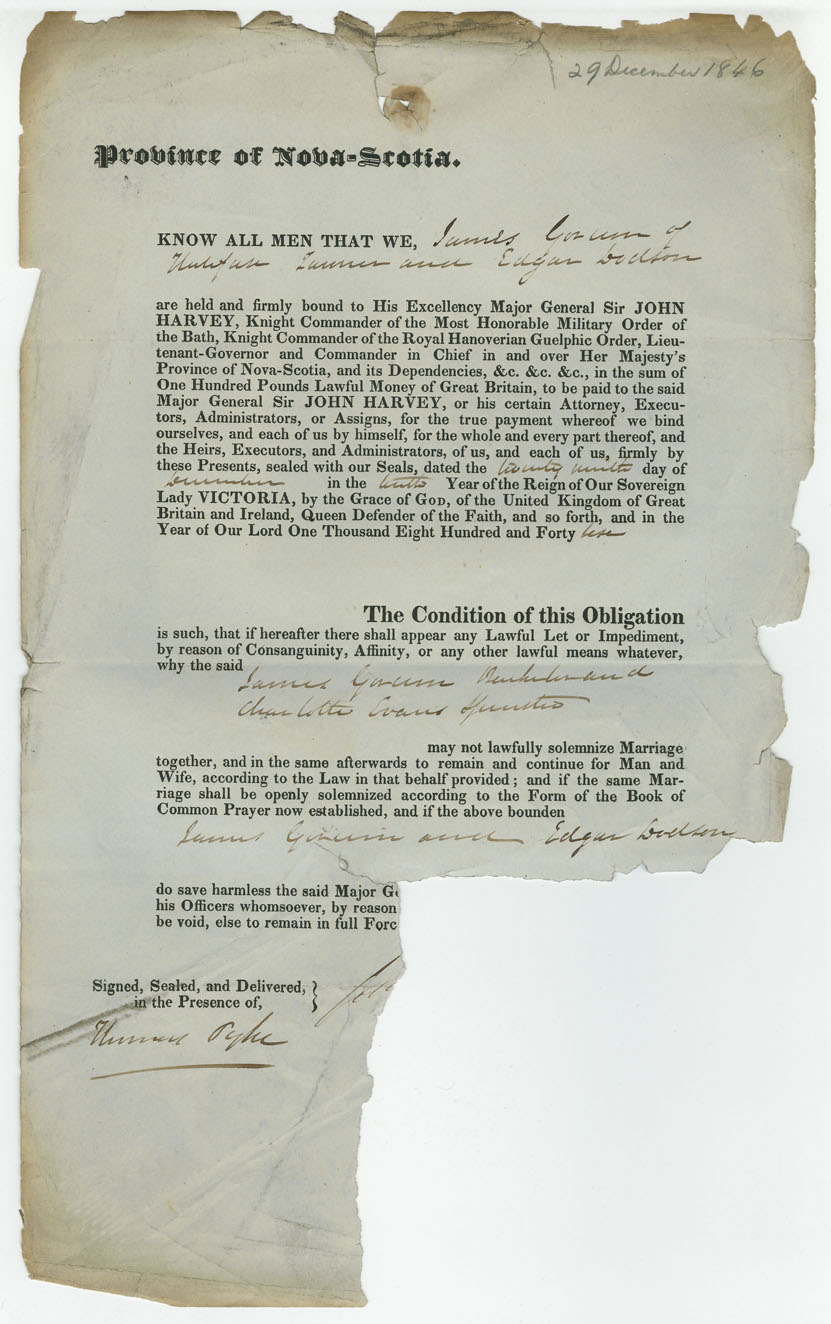 29 December 1846
Province of Nova-Scotia.
KNOW ALL MEN THAT WE, James of
Halifax and Edgar Dodson
are held and firmly bound to His Excellency Major General Sir JOHN
HARVEY, Knight Commander of the Most Honorable Military Order of
the Bath, Knight Commander of the Royal Hanoverian Guelphic Order, Lieu-
tenant-Governor and Commander in Chief in and over Her Majesty's
Province of Nova-Scotia, and its Dependencies, &c. &c. &c., in the sum of
One Hundred Pounds Lawful Money of Great Britain, to be paid to the said
Major General Sir JOHN HARVEY, or his certain Attorney, Execu-
tors, Administrators, or Assigns, for the true payment whereof we bind
ourselves, and each of us by himself, for the whole and every part thereof, and
the Heirs, Executors, and Administrators, of us, and each of us, firmly by
these Presents, sealed with our Seals, dated the twenty ninth day of
December in the tenth Year of the Reign of Our Sovereign
Lady VICTORIA, by the Grace of GOD, of the United Kingdom of Great
Britain and Ireland, Queen Defender of the Faith, and so forth, and in the
Year of Our Lord One Thousand Eight Hundred and Forty six
The Condition of this Obligation
is such, that if hereafter there shall appear any Lawful Let or Impediment,
by reason of Consanguinity, Affinity, or any other lawful means whatever,
why the said
James Bachelor and
Charlotte Evans Spinster
may not lawfully solemnize Marriage
together, and in the same afterwards to remain and continue for Man and
Wife, according to the Law in that behalf provided; and if the same Mar-
riage shall be openly solemnized according to the Form of the Book of
Common Prayer now established, and if the above bounden
James and Edgar Dodson
do save harmless the said Major G
his Officers whomsoever, by reason
be void, else to remain in full Forc
Signed, Sealed, and Delivered, }
in the Presence of,
Thomas Pyke